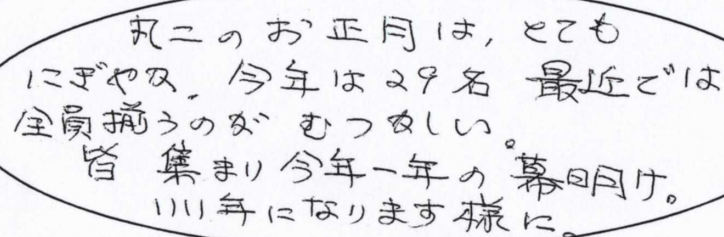 丸二のお正月は,とても
にぎやか.今年は29名 最近では
全員揃うのが むつかしい。
皆 集まり今年一年の幕明け。
いい年になります様に。